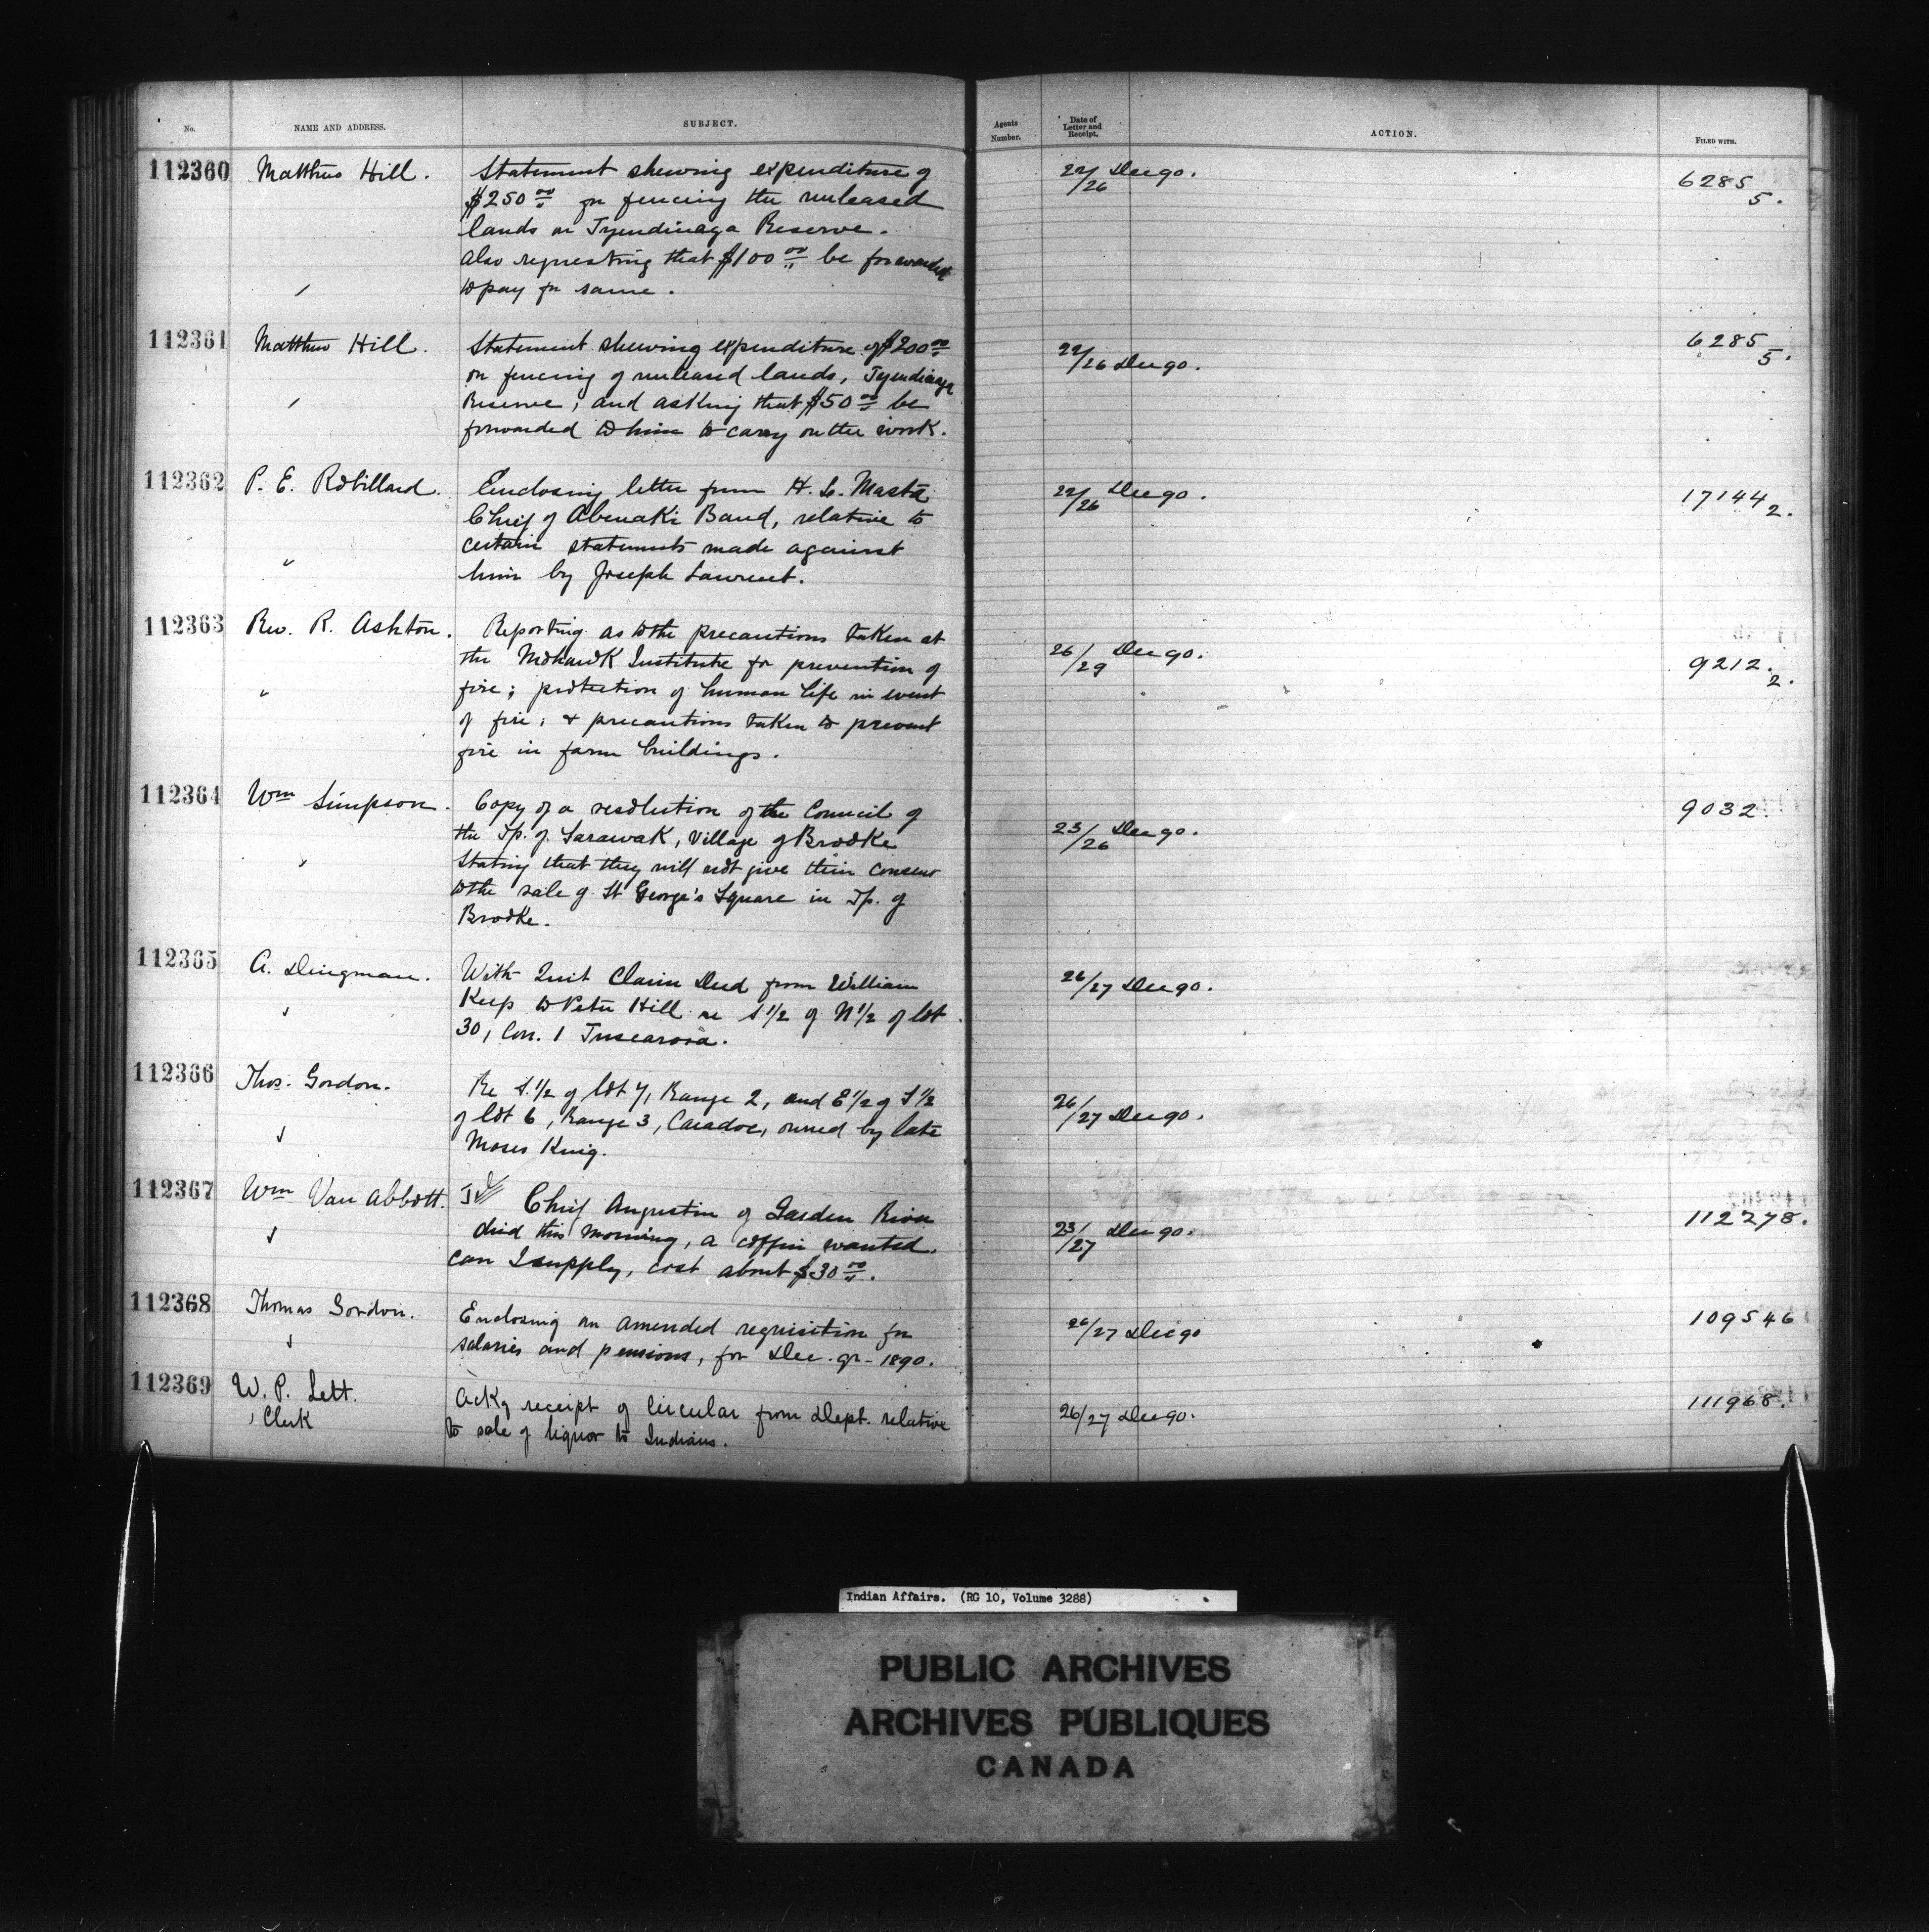 No. NAME AND ADDRESS. SUBJECT. Agents Number. Date of Letter and Receipt. ACTION. FILED WITH.
112360 Matthew Hill. Statement shewing expenditure of 22/26 Dec 90. 6285
$250 00 for fencing the unleased 5.
lands on Tyendinaga Reserve.
Also requesting that $100 00 be forwarded
to pay for same.
112361 Matthew Hill. Statement shewing expenditure of $200 00 22/26 Dec 90. 6285
on fencing of unleased lands, Tyendinaga 5.
Reserve; and asking that $50 00 be
forwarded to him to carry on the work.
112362 P. E. Robillard. Enclosing letter from H. L. Masta 22/26 Dec 90. 17144
Chief of Abenaki Band, relative to 2.
certain statements made against
him by Joseph Laurent.
112363 Rev. R. Ashton. Reporting as to the precautions taken at 26/29 Dec 90.
the Mohawk Institute for prevention of 9212.
fire; protection of human life in event 2.
of fire; & precautions taken to prevent
fire in farm buildings.
112364 Wm Simpson. Copy of a resolution of the Council of 23/26 Dec 90. 9032.
the Tp. of Sarawak, Village of Brooke
stating that they will not give their consent
to the sale of St George's Square in Tp. of
Brooke.
112365 A. Dingman. With Quit Claim Deed from William 26/27 Dec 90.
Keep to Peter Hill re S 1/2 of N 1/2 of lot
30, Con. 1 Tuscarora.
112366 Thos. Gordon. Re S. 1/2 of lot 7, Range 2, and E 1/2 of S 1/2 26/27 Dec 90.
of lot 6, Range 3, Caradoc, owned by late
Moses King.
112367 Wm Van Abbott. Chief Augustin of Garden River 23/27 Dec 90. 112278.
died this morning, a coffin wanted.
can I supply, cost about $30 00.
112368 Thomas Gordon. Enclosing an amended requisition for 26/27 Dec 90 109546
salaries and pensions, for Dec. qr - 1890.
112369 W. P. Lett. Ackg receipt of Circular from Dept. relative 26/27 Dec 90. 111968.
Clerk to sale of liquor to Indians.
Indian Affairs. (RG 10, Volume 3288)
PUBLIC ARCHIVES
ARCHIVES PUBLIQUES
CANADA